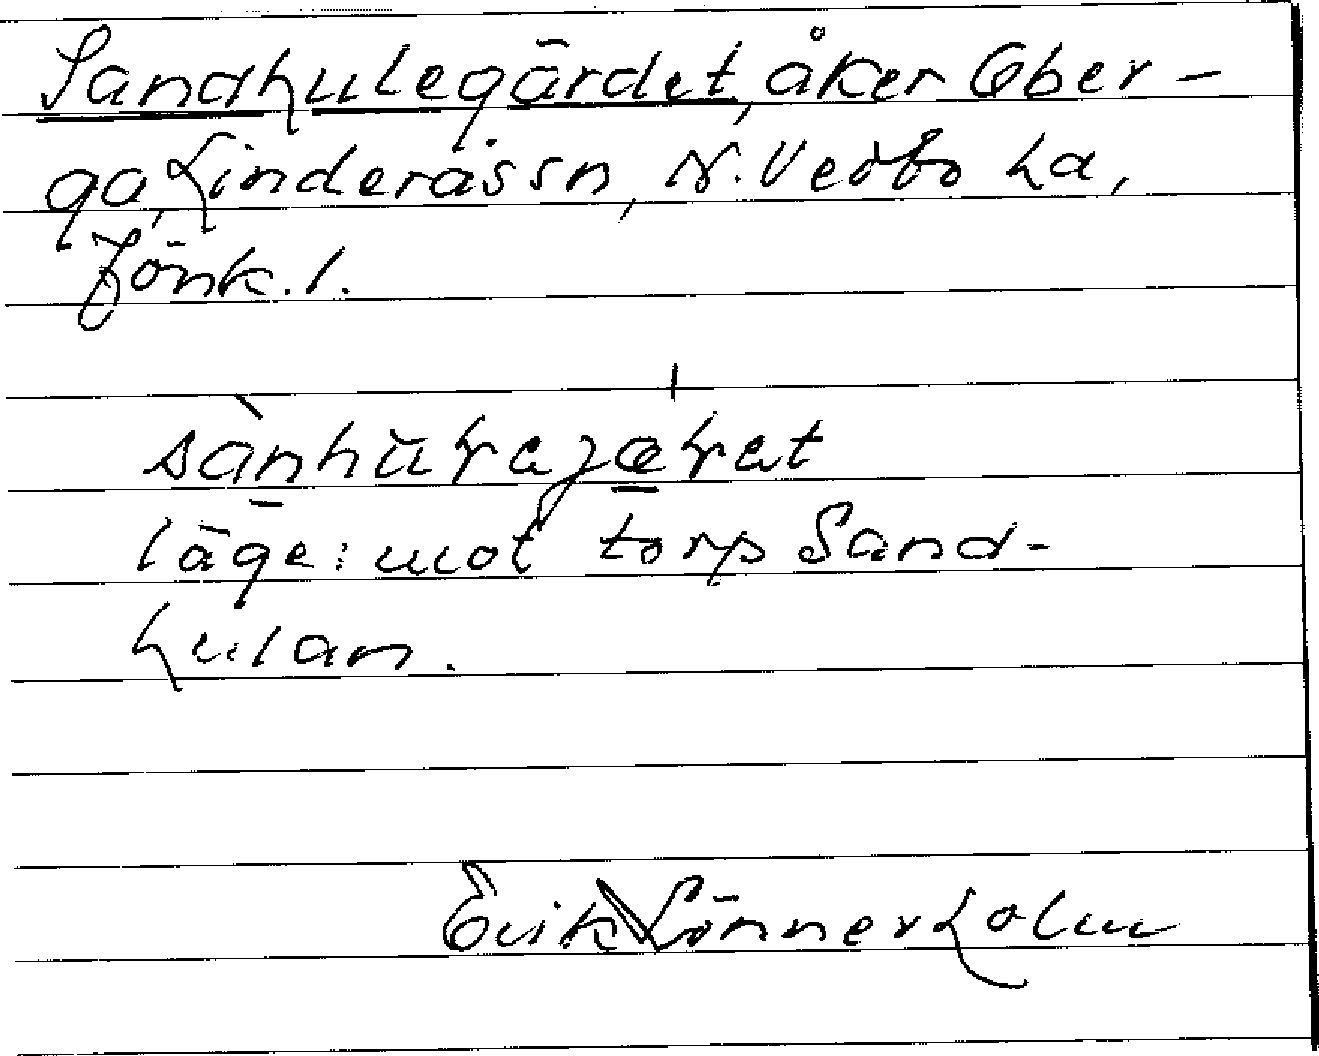 Sandhulegärdet, åker Ober-
ga, Linderås sn, N. Vedbo hd,
Jönk. l.
läge: mot torp Sand-
hulan.
Erik Lönnerholm